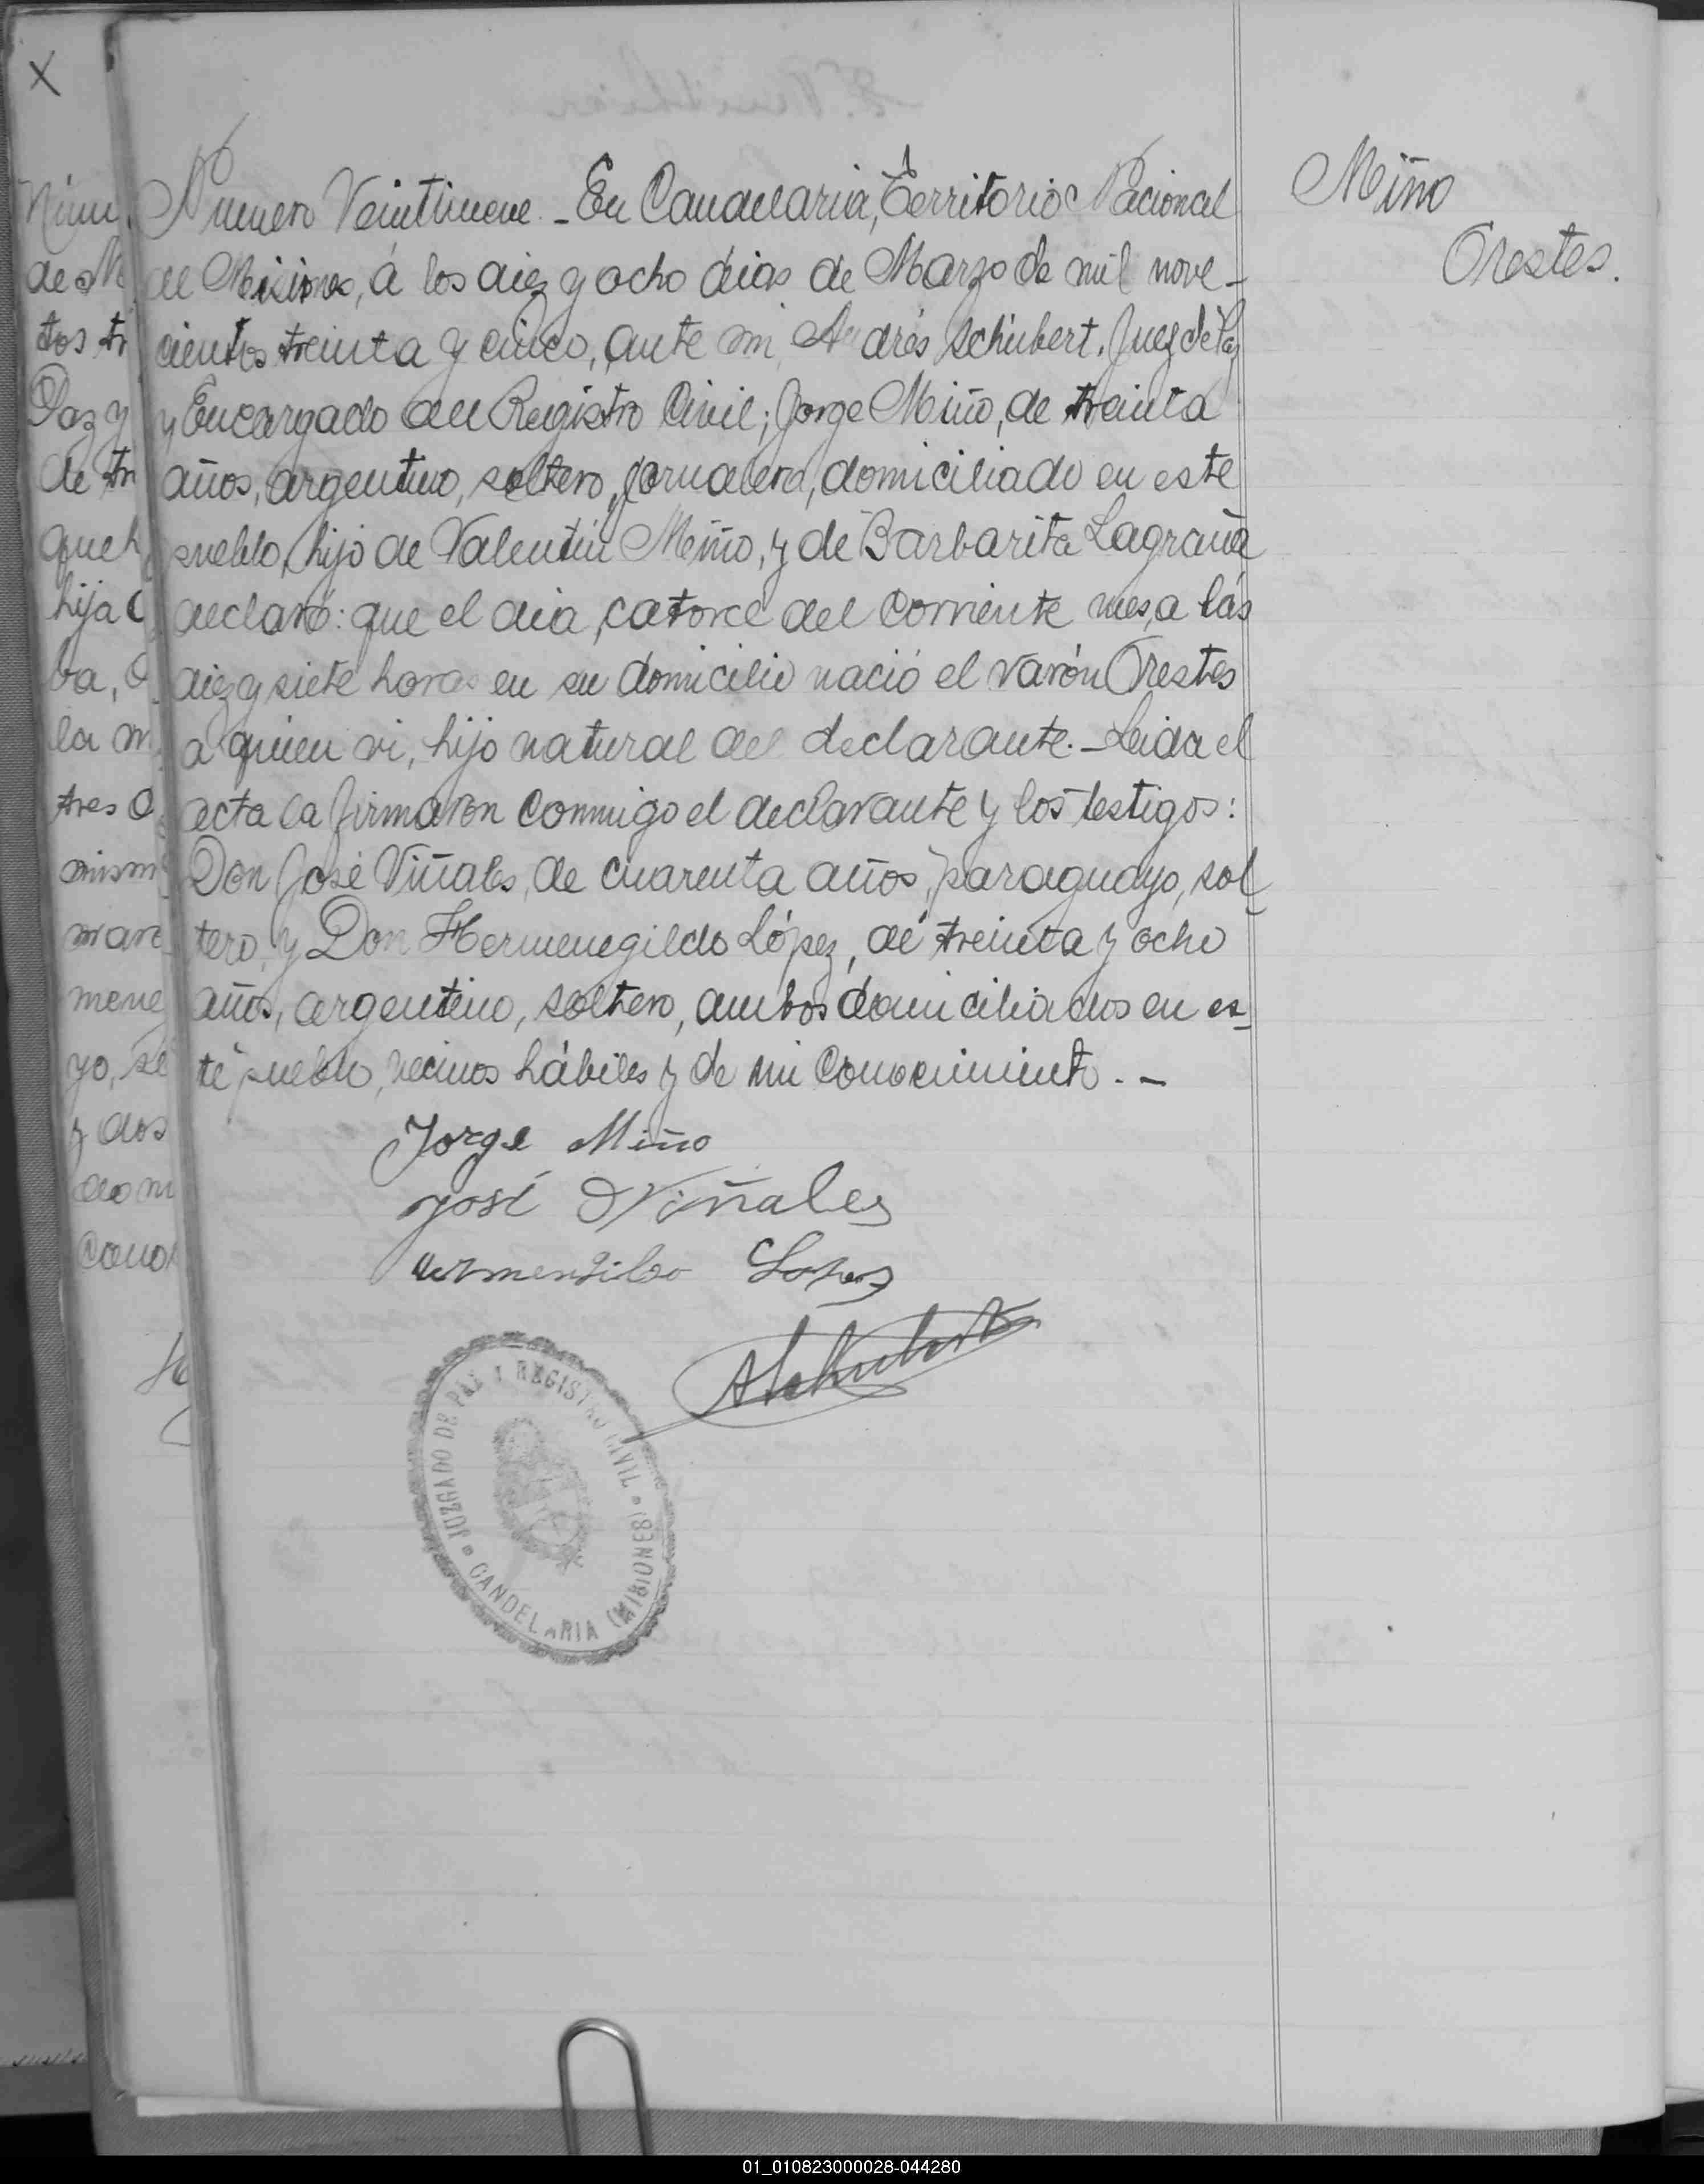 X
Miño
Orestes.
Numero Veintinueve. - En Candelaria, Territorio Nacional
de Misiones, á los diez y ocho dias de Marzo de mil nove-
cientos treinta y cinco, ante mi, Andrés Schubert, Juez de Paz
y Encargado del Registro Civil; Jorge Miño, de treinta
años, argentino, soltero, jornalero, domiciliado en este
pueblo, hijo de Valentín Miño, y de Barbarita Lagraña
declaró: que el dia, catorce del corriente mes, a las
diez y siete horas en su domicilio nació el varón Orestes
a quien vi, hijo natural del declarante. - Leida el
acta la firmaron conmigo el declarante y los testigos:
Don José Viñales, de cuarenta años, paraguayo, sol-
tero, y Don Hermenegildo López, de treinta y ocho
años, argentino, soltero, ambos domiciliados en es-
te pueblo, vecinos hábiles y de mi conocimiento. -
Jorge Miño
José Viñales
Lopez
ASchubert
JUZGADO DE PAZ Y REGISTRO CIVIL
CANDELARIA (MISIONES)
Núm
de M
tos tr
Paz y
de tr
que h
hija
ba,
la m
tres
mism
mar
mene
yo, se
y dos
dom
Cono
01_010823000028-044280